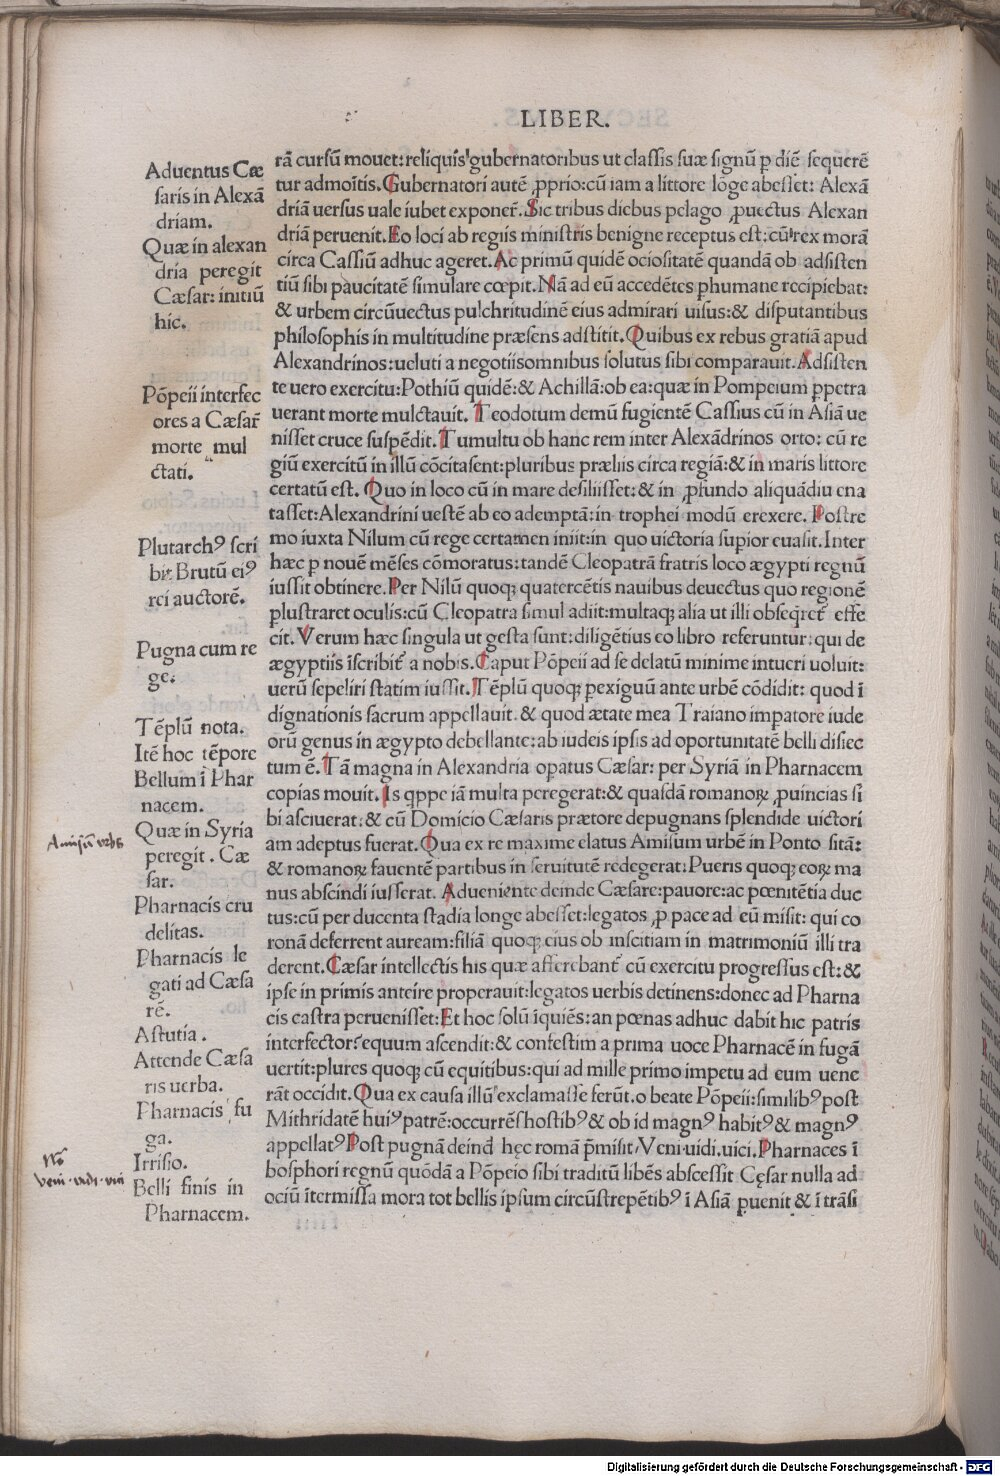 LIBER.
Aduentus Cæ
saris in Alexã
driam.
Quæ in alexan
dria peregit
Cæsar: initiũ
hic.
Põpeii interfec
ores a Cæsar̃
morte mul
ctati.
Plutarchꝰ scri
bit Brutũ eiꝰ
rei auctorẽ.
Pugna cum re
ge.
Tẽplũ nota.
Itẽ hoc tẽpore
Bellum ĩ Phar
nacem.
Quæ in Syria
peregit. Cæ
sar.
Pharnacis cru
delitas.
Pharnacis le
gati ad Cæsa
rẽ.
Astutia.
Attende Cæsa
ris uerba.
Pharnacis fu
ga.
Irrisio.
Belli finis in
Pharnacem.
Amisũ vrbs
Nõ
veni · vidi · vici
rã cursũ mouet: reliquis gubernatoribus ut classis suæ signũ ꝑ diẽ sequerẽ
tur admoĩtis. Gubernatori autẽ ꝓprio: cũ iam a littore lõge abesset: Alexã
driã uersus uale iubet exponer̃. Sic tribus diebus pelago ꝓuectus Alexan
driã peruenit. Eo loci ab regiis ministris benigne receptus est: cũ rex morã
circa Cassiũ adhuc ageret. Ac primũ quidẽ ociositatẽ quandã ob adsisten
tiũ sibi paucitatẽ simulare cœpit. Nã ad eũ accedẽtes ꝑhumane recipiebat:
& urbem circũuectus pulchritudinẽ eius admirari uisus: & disputantibus
philosophis in multitudine præsens adstitit. Quibus ex rebus gratiã apud
Alexandrinos: ueluti a negotiisomnibus solutus sibi comparauit. Adsisten
te uero exercitu: Pothiũ quidẽ: & Achillã: ob ea: quæ in Pompeium ꝑpetra
uerant morte mulctauit. Teodotum demũ fugientẽ Cassius cũ in Asiã ue
nisset cruce suspẽdit. Tumultu ob hanc rem inter Alexãdrinos orto: cũ re
giũ exercitũ in illũ cõcitasent: pluribus præliis circa regiã: & in maris littore
certatũ est. Quo in loco cũ in mare desiliisset: & in ꝓfundo aliquãdiu ena
tasset: Alexandrini uestẽ ab eo ademptã: in trophei modũ erexere. Postre
mo iuxta Nilum cũ rege certamen iniit: in quo uictoria suꝑior euasit. Inter
hæc ꝑ nouẽ mẽses cõmoratus: tandẽ Cleopatrã fratris loco ægypti regnũ
iussit obtinere. Per Nilũ quoqꝫ quatercẽtis nauibus deuectus quo regionẽ
plustraret oculis: cũ Cleopatra simul adiit: multaqꝫ alia ut illi obseq̃ret̃ effe
cit. Verum hæc singula ut gesta sunt: diligẽtius eo libro referuntur: qui de
ægyptiis ĩscribit̃ a nobis. Caput Põpeii ad se delatũ minime intueri uoluit:
uerũ sepeliri statim iussit. Tẽplũ quoqꝫ ꝑexiguũ ante urbẽ cõdidit: quod ĩ
dignationis sacrum appellauit. & quod ætate mea Traiano imꝑatore iude
orũ genus in ægypto debellante: ab iudeis ipsis ad oportunitatẽ belli disiec
tum ẽ. Tã magna in Alexandria oꝑatus Cæsar: per Syriã in Pharnacem
copias mouit. Is qꝑpe iã multa peregerat: & quasdã romanoꝝ ꝓuincias si
bi asciuerat: & cũ Domicio Cæsaris prætore depugnans splendide uictori
am adeptus fuerat. Qua ex re maxime elatus Amisum urbẽ in Ponto sitã:
& romanoꝝ fauentẽ partibus in seruitutẽ redegerat: Pueris quoqꝫ eoꝝ ma
nus abscindi iusserat. Adueniente deinde Cæsare: pauore: ac pœnitẽtia duc
tus: cũ per ducenta stadia longe abesset: legatos ꝓ pace ad eũ misit: qui co
ronã deferrent auream: filiã quoqꝫ eius ob inscitiam in matrimoniũ illi tra
derent. Cæsar intellectis his quæ afferebant̃ cũ exercitu progressus est: &
ipse in primis anteire properauit: legatos uerbis detinens: donec ad Pharna
cis castra peruenisset: Et hoc solũ ĩquiẽs: an pœnas adhuc dabit hic patris
interfector: equum ascendit: & confestim a prima uoce Pharnacẽ in fugã
uertit: plures quoqꝫ cũ equitibus: qui ad mille primo impetu ad eum uene
rãt occidit. Qua ex causa illũ exclamasse ferũt. o beate Põpeii: similibꝰ post
Mithridatẽ huiꝰ patrẽ: occurrẽs hostibꝰ & ob id magnꝰ habitꝰ & magnꝰ
appellatꝰ Post pugnã deinđ hęc romã p̃misit / Veni · uidi . uici. Pharnaces ĩ
bosphori regnũ quõdã a Põpeio sibi traditũ libẽs abscessit Cęsar nulla ad
ociũ ĩtermissa mora tot bellis ipsum circũstrepẽtibꝰ ĩ Asiã ꝑuenit & ĩ trãsi
Digitalisierung gefördert durch die Deutsche Forschungsgemeinschaft - DFG